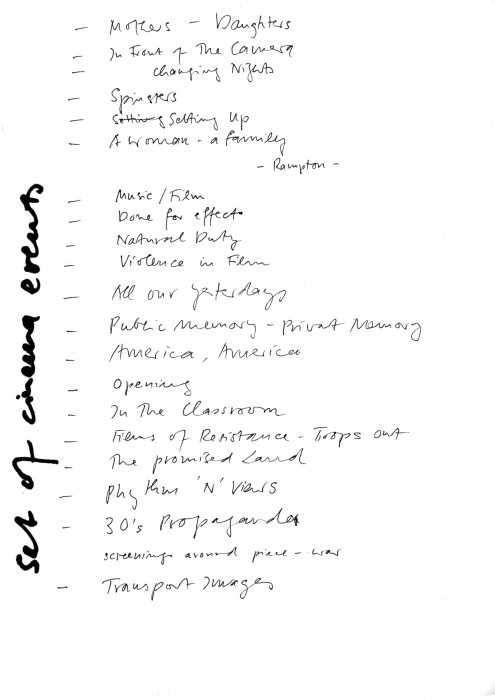 set of cinema events
- Mothers - Daughters
- In Front of The Camera
- changing Nights
- Spinsters
- Setting Setting Up
- A woman - a family
- Rampton -
- Music / Film
- Done for effect
- Natural Duty
- Violence in Film
- All our yesterdays
- Public Memory - Privat Memory
- America, America
- Opening
- In The Classroom
- Films of Resistance - Troops out
- The promised Land
- Rhythm 'N' Views
- 30's Propaganda
screenings around piece - war
- Transport Images